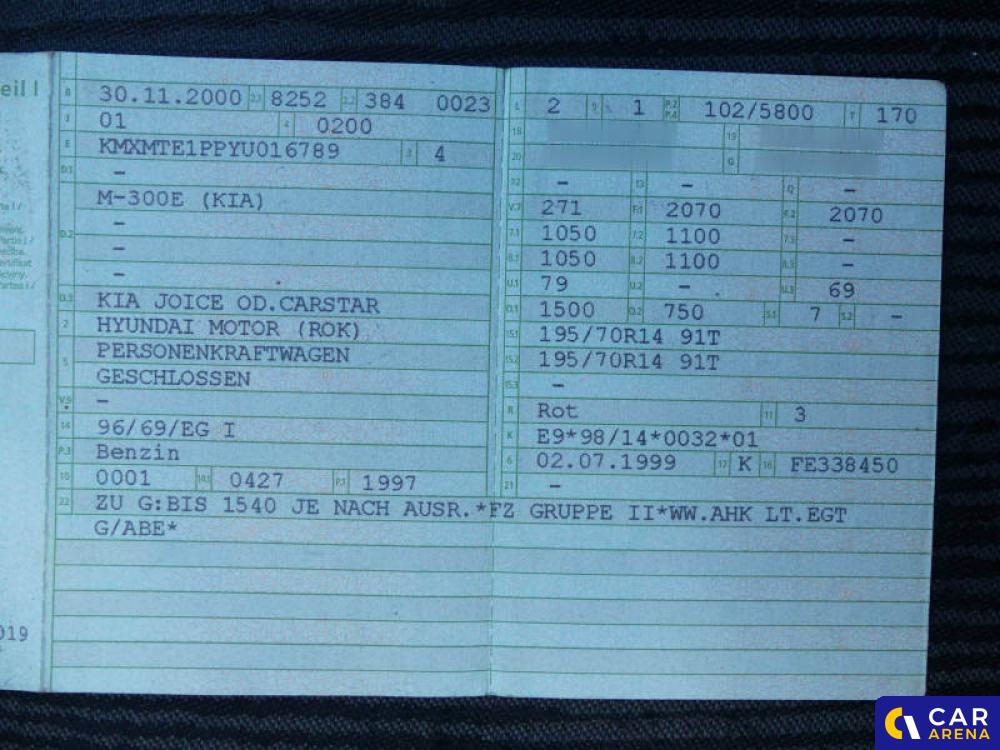 eil I
B 30.11.2000 2.1 8252 2.2 384 0023
J 01 4 0200
E KMXMTE1PPYU016789 3 4
D.1 -
M-300E (KIA)
-
D.2 -
-
D.3 KIA JOICE OD.CARSTAR
2 HYUNDAI MOTOR (ROK)
5 PERSONENKRAFTWAGEN
GESCHLOSSEN
V.9 -
14 96/69/EG I
P.3 Benzin
10 0001 14.1 0427 P.1 1997
22 ZU G:BIS 1540 JE NACH AUSR.*FZ GRUPPE II*WW.AHK LT.EGT
G/ABE*
L 2 9 1 P.2 P.4 102/5800 T 170
18 19
20 G
12 - 13 - Q -
V.7 271 F.1 2070 F.2 2070
7.1 1050 7.2 1100 7.3 -
8.1 1050 8.2 1100 8.3 -
U.1 79 U.2 - U.3 69
O.1 1500 O.2 750 S.1 7 S.2 -
15.1 195/70R14 91T
15.2 195/70R14 91T
15.3 -
R Rot 11 3
K E9*98/14*0032*01
6 02.07.1999 17 K 16 FE338450
21 -
019
CAR
ARENA